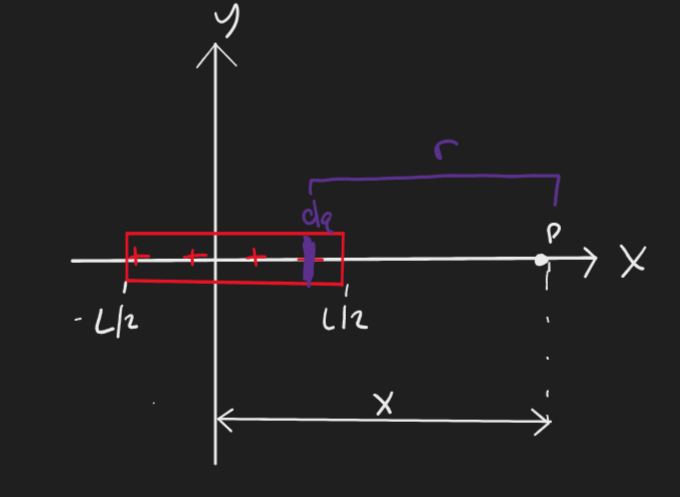 y
r
dq
P
+ + +
X
- L/2
L/2
X